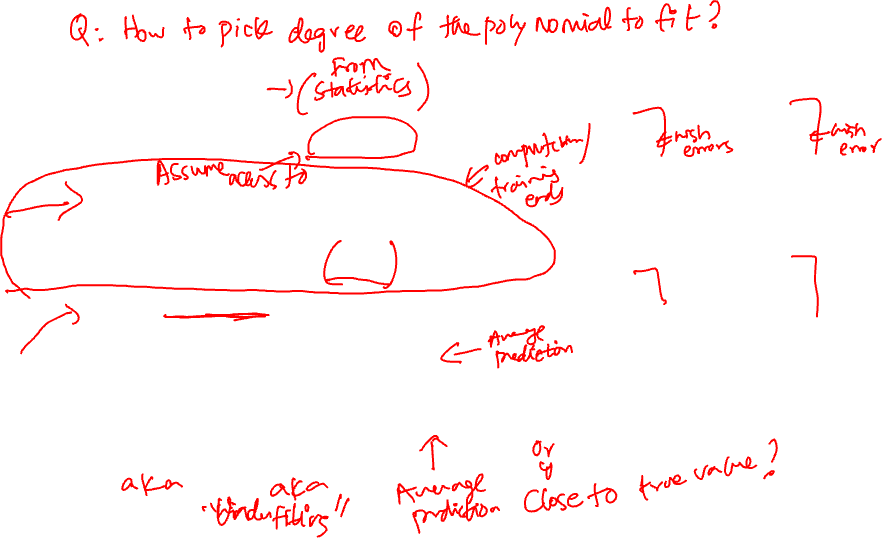 Q: How to pick degree of the polynomial to fit?
→ (From statistics)
Assume access to
computation/
training
ends
high
errors
high
error
Average
prediction
aka
aka
"Underfitting"
Average
prediction
or
close to true value?